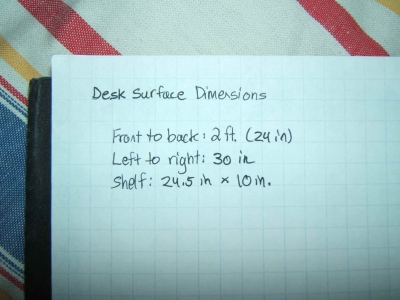 Desk Surface Dimensions
Front to back: 2 ft. (24 in)
Left to right: 30 in
Shelf: 24.5 in × 10 in.